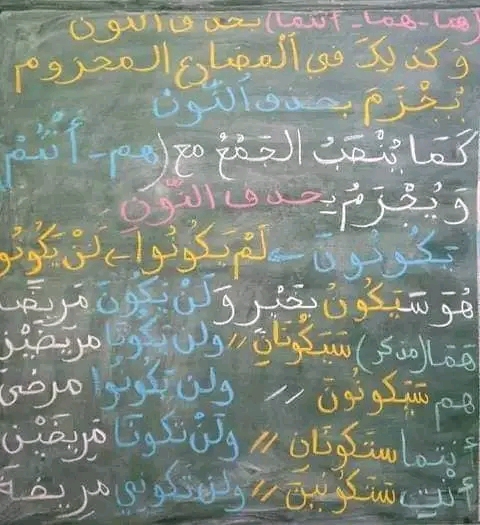 (هما-هما-أنتما) بحذف النون
وكذلك في الْمضارع المجزوم
يُجْزَمَ بحذف النُّون
كَمَا يُنْصَبُ الجَمْعُ مع (هم-أَنْتُمْ
وَيُجْزَمُ بحذف النُّون
يَكُونُونَ ← لَمْ يَكُونُوا - لَنْ يَكُونُو
هُوَ سَيَكُونُ بِخَيْر وَلَنْ يَكُونَ مَرِيضًا
هَمَا (مذكر) سَيَكُونَانِ // ولن يَكُونَا مرِيضَيْن
هم سَيَكونُونَ // ولن يَكُونُوا مرضَى
أنتما ستَكونَانِ // ولَنْ تَكُونَا مَرِيضَيْن
أنْتِ سَتَكُونِينَ // ولن تكوني مرِيضة